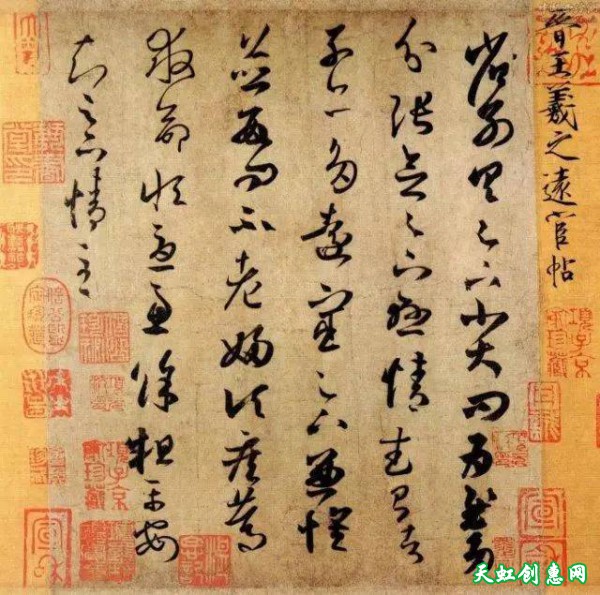 晉王羲之遠宦帖
省別具足下小大問為慰多
分張念足下懸情武昌諸
子亦多遠宦足下兼懷
並數問不老婦頃疾篤
救命恒憂慮餘粗平安
知足下情至
項子京家珍藏
天虹创惠网